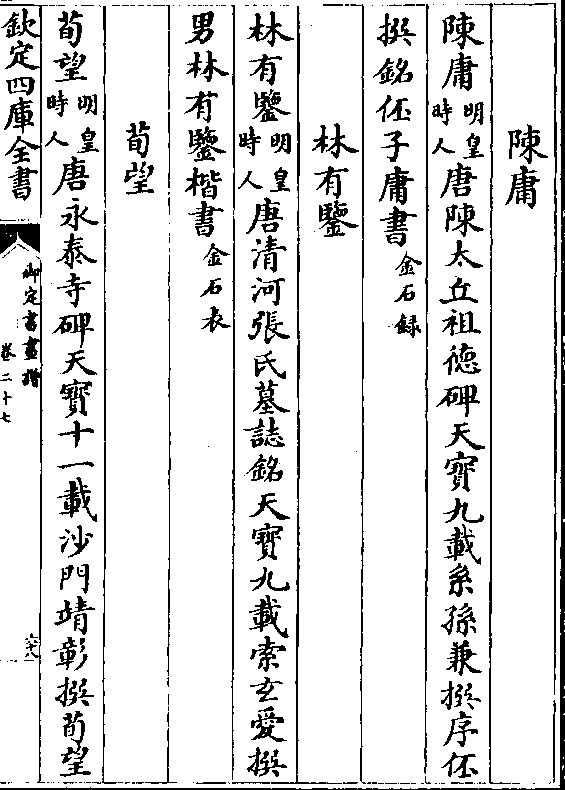 陳庸
陳庸明皇時人唐陳太丘祖徳碑天寳九載系孫兼撰序伾
撰銘伾子庸書金石録
林有鑒
林有鑒明皇時人唐清河張氏墓誌銘天寳九載索玄愛撰
男林有鑒楷書金石表
荀望
荀望明皇時人唐永泰寺碑天寳十一載沙門靖彰撰荀望
欽定四庫全書
御定書畫譜
卷二十七
六十八